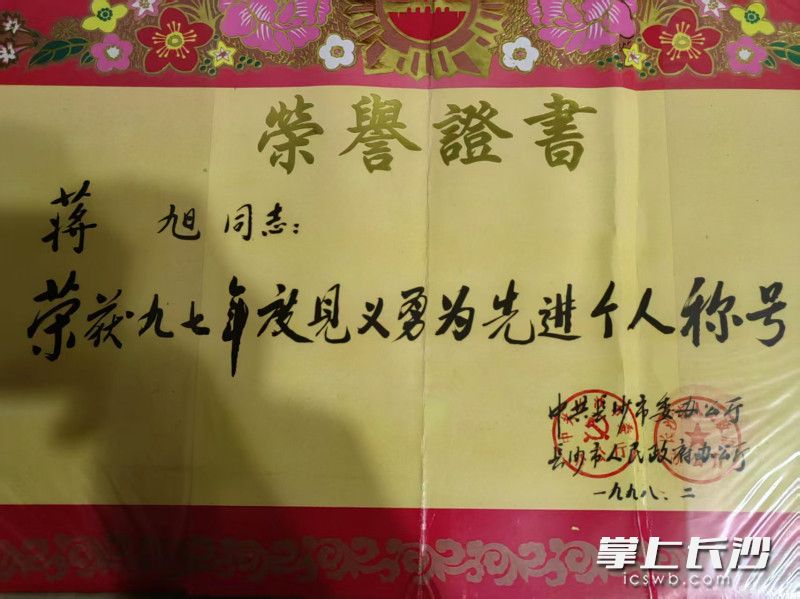 榮譽證書
蒋旭同志:
荣获九七年度见义勇为先进个人称号
中共长沙市委办公厅
长沙市人民政府办公厅
一九九八.二
掌上长沙
icswb.com